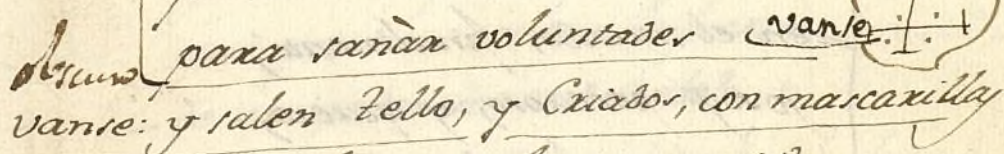 obscuro para sanàr voluntades vanse
vanse: y salen Tello, y Criados, con mascarillas